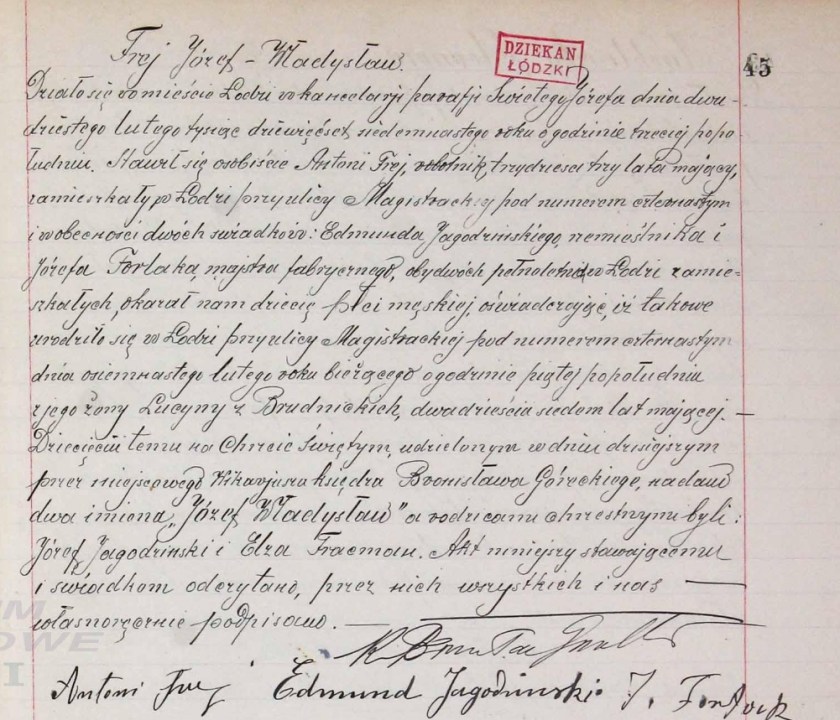 Frej Józef - Władysław.
DZIEKAN
ŁÓDZKI
45
Działo się w mieście Łodzi w kancelarji parafji Świętego Józefa dnia dwu-
dziestego lutego tysiąc dziewięćset siedemnastego roku o godzinie trzeciej popo-
łudniu. Stawił się osobiście Antoni Frej, robotnik, trzydzieści trzy lata mający,
zamieszkały w Łodzi przy ulicy Magistrackiej pod numerem czternastym
i w obecności dwóch świadków: Edmunda Jagodzińskiego, rzemieślnika i
Józefa Forlaka, majstra fabrycznego, obydwóch pełnoletnich w Łodzi zamie-
szkałych, okazał nam dziecię płci męskiej, oświadczając, iż takowe
urodziło się w Łodzi przy ulicy Magistrackiej pod numerem czternastym
dnia osiemnastego lutego roku bieżącego o godzinie piątej popołudniu
z jego żony Lucyny z Brudnickich, dwadzieścia siedem lat mającej. —
Dziecięciu temu na Chrzcie Świętym, udzielonym w dniu dzisiejszym
przez miejscowego Wikarjusza księdza Bronisława Góreckiego, nadano
dwa imiona „Józef Władysław" a rodzicami chrzestnymi byli:
Józef Jagodziński i Elza Fracman. Akt niniejszy stawającemu
i świadkom odczytano, przez nich wszystkich i nas —
własnoręcznie podpisano. —
Antoni Frej Edmund Jagodzinski J. Forlack